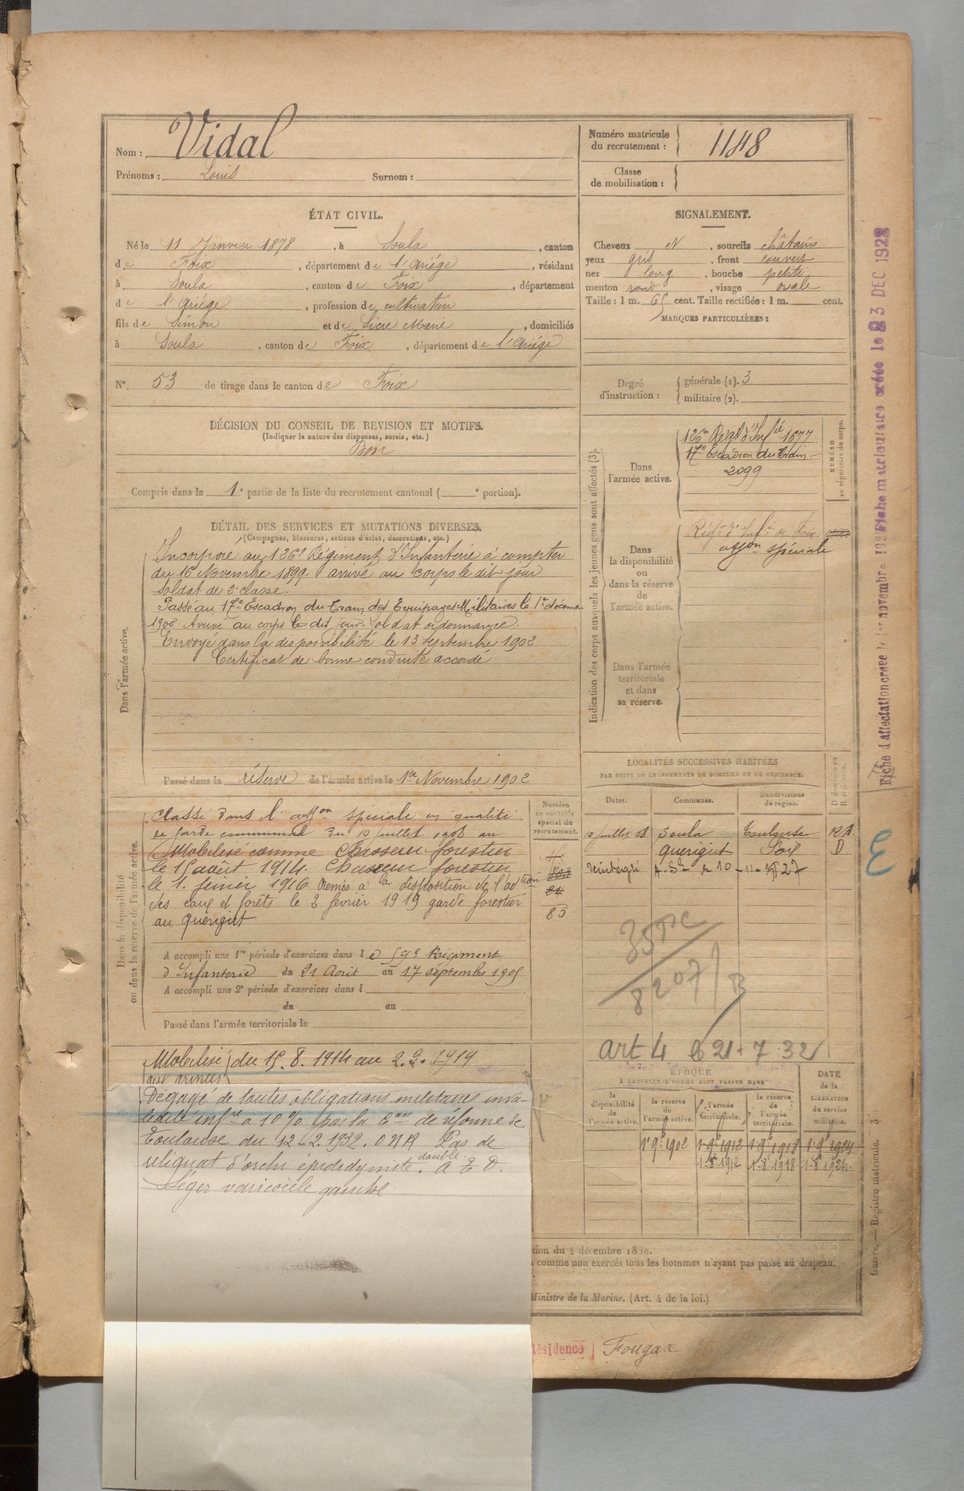 Nom : Vidal
Prénoms : Louis Surnom :
Numéro matricule du recrutement : 1148
Classe de mobilisation :
ÉTAT CIVIL.
Né le 11 Janvier 1878, à Soula, canton
de Foix, département de l'Ariége, résidant
à Soula, canton de Foix, département
de l'Ariége, profession de cultivateur
fils de Simon et de Sicre Marie, domiciliés
à Soula, canton de Foix, département de l'Ariége
N° 53 de tirage dans le canton de Foix
SIGNALEMENT.
Cheveux N, sourcils châtains
yeux gris, front couvert
nez long, bouche petite
menton rond, visage ovale
Taille : 1 m. 65 cent. Taille rectifiée : 1 m. cent.
MARQUES PARTICULIÈRES :
Degré d'instruction : générale (1). 3
militaire (2).
DÉCISION DU CONSEIL DE REVISION ET MOTIFS.
(Indiquer la nature des dispenses, sursis, etc.)
Bon
Compris dans la 1e partie de la liste du recrutement cantonal ( e portion).
DÉTAIL DES SERVICES ET MUTATIONS DIVERSES.
(Campagnes, blessures, actions d'éclat, décorations, etc.)
Dans l'armée active.
Incorporé au 126e Régiment d'Infanterie à compter
du 16 Novembre 1899 arrivé au corps le dit jour
soldat de 2e classe.
Passé au 17e Escadron du Train des Equipages Militaires le 1er décembre
1900 Arrivé au corps le dit jour. Soldat ordonnance.
Envoyé dans la disponibilité le 13 Septembre 1902
Certificat de bonne conduite accordé
Passé dans la réserve de l'armée active le 1er Novembre 1902
Indication des corps auxquels les jeunes gens sont affectés (3).
Dans l'armée active.
126me Régt d'Infie 1677
17e Escadron du Train
2099
Dans la disponibilité ou dans la réserve de l'armée active.
affon spéciale
Dans l'armée territoriale et dans sa réserve.
NUMÉRO au répertoire du corps.
LOCALITÉS SUCCESSIVES HABITÉES
PAR SUITE DE CHANGEMENTS DE DOMICILE OU DE RÉSIDENCE.
Dates. Communes. Subdivisions de région. D domicile ou R résid.
10 juillet 08 Soula Toulouse R.
Quérigut Foix D
Dans la disponibilité ou dans la réserve de l'armée active.
Numéro au contrôle spécial du recrutement.
83
Classé dans l'affon spéciale en qualité
de garde communal du 10 juillet 1908 au
Mobilisé comme Chasseur forestier
le 15 août 1914. Chasseur forestier
le 1. février 1916 Remis à la disposition de l'adtion
des eaux et forêts le 2 février 1919 garde forestier
au Quérigut
A accompli une 1re période d'exercices dans le 59e Régiment
d'Infanterie du 21 Août au 17 septembre 1905
A accompli une 2e période d'exercices dans l
du au
Passé dans l'armée territoriale le
Mobilisé du 15.8.1914 au 2.2.1919
aux armées
Dégagé de toutes obligations militaires inva-
lidité infre à 10% par la Con de réforme de
Toulouse du 12-2-1932. O.N.R. Pas de
reliquat d'orchi épididymite double. A E D.
Léger varicocèle gauche
8207
art 4 21-7 32
ÉPOQUE
À LAQUELLE L'HOMME DOIT PASSER DANS
la disponibilité de l'armée active.
la réserve de l'armée active.
l'armée territoriale.
la réserve de l'armée territoriale.
DATE de la LIBÉRATION du service militaire.
1-9 1902 1-9 1912 1-9 1918 1-9 1924
1-8 1912 1-8 1918 1-8 1924
comme non exercés tous les hommes n'ayant pas passé au drapeau.
Ministre de la Marine. (Art. 4 de la loi.)
Résidence Fougax
Registre matricule.
Fiche matriculaire créée le 3 DEC 1928
Fiche d'affectation créée le 1er novembre